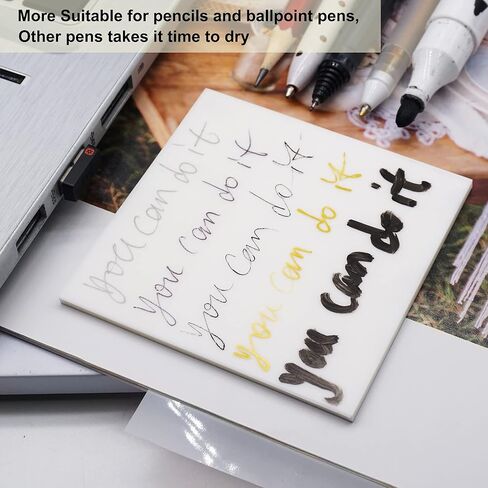 More Suitable for pencils and ballpoint pens,
Other pens takes it time to dry
you can do it
you can do it
you can do it
you can do it
you can do it